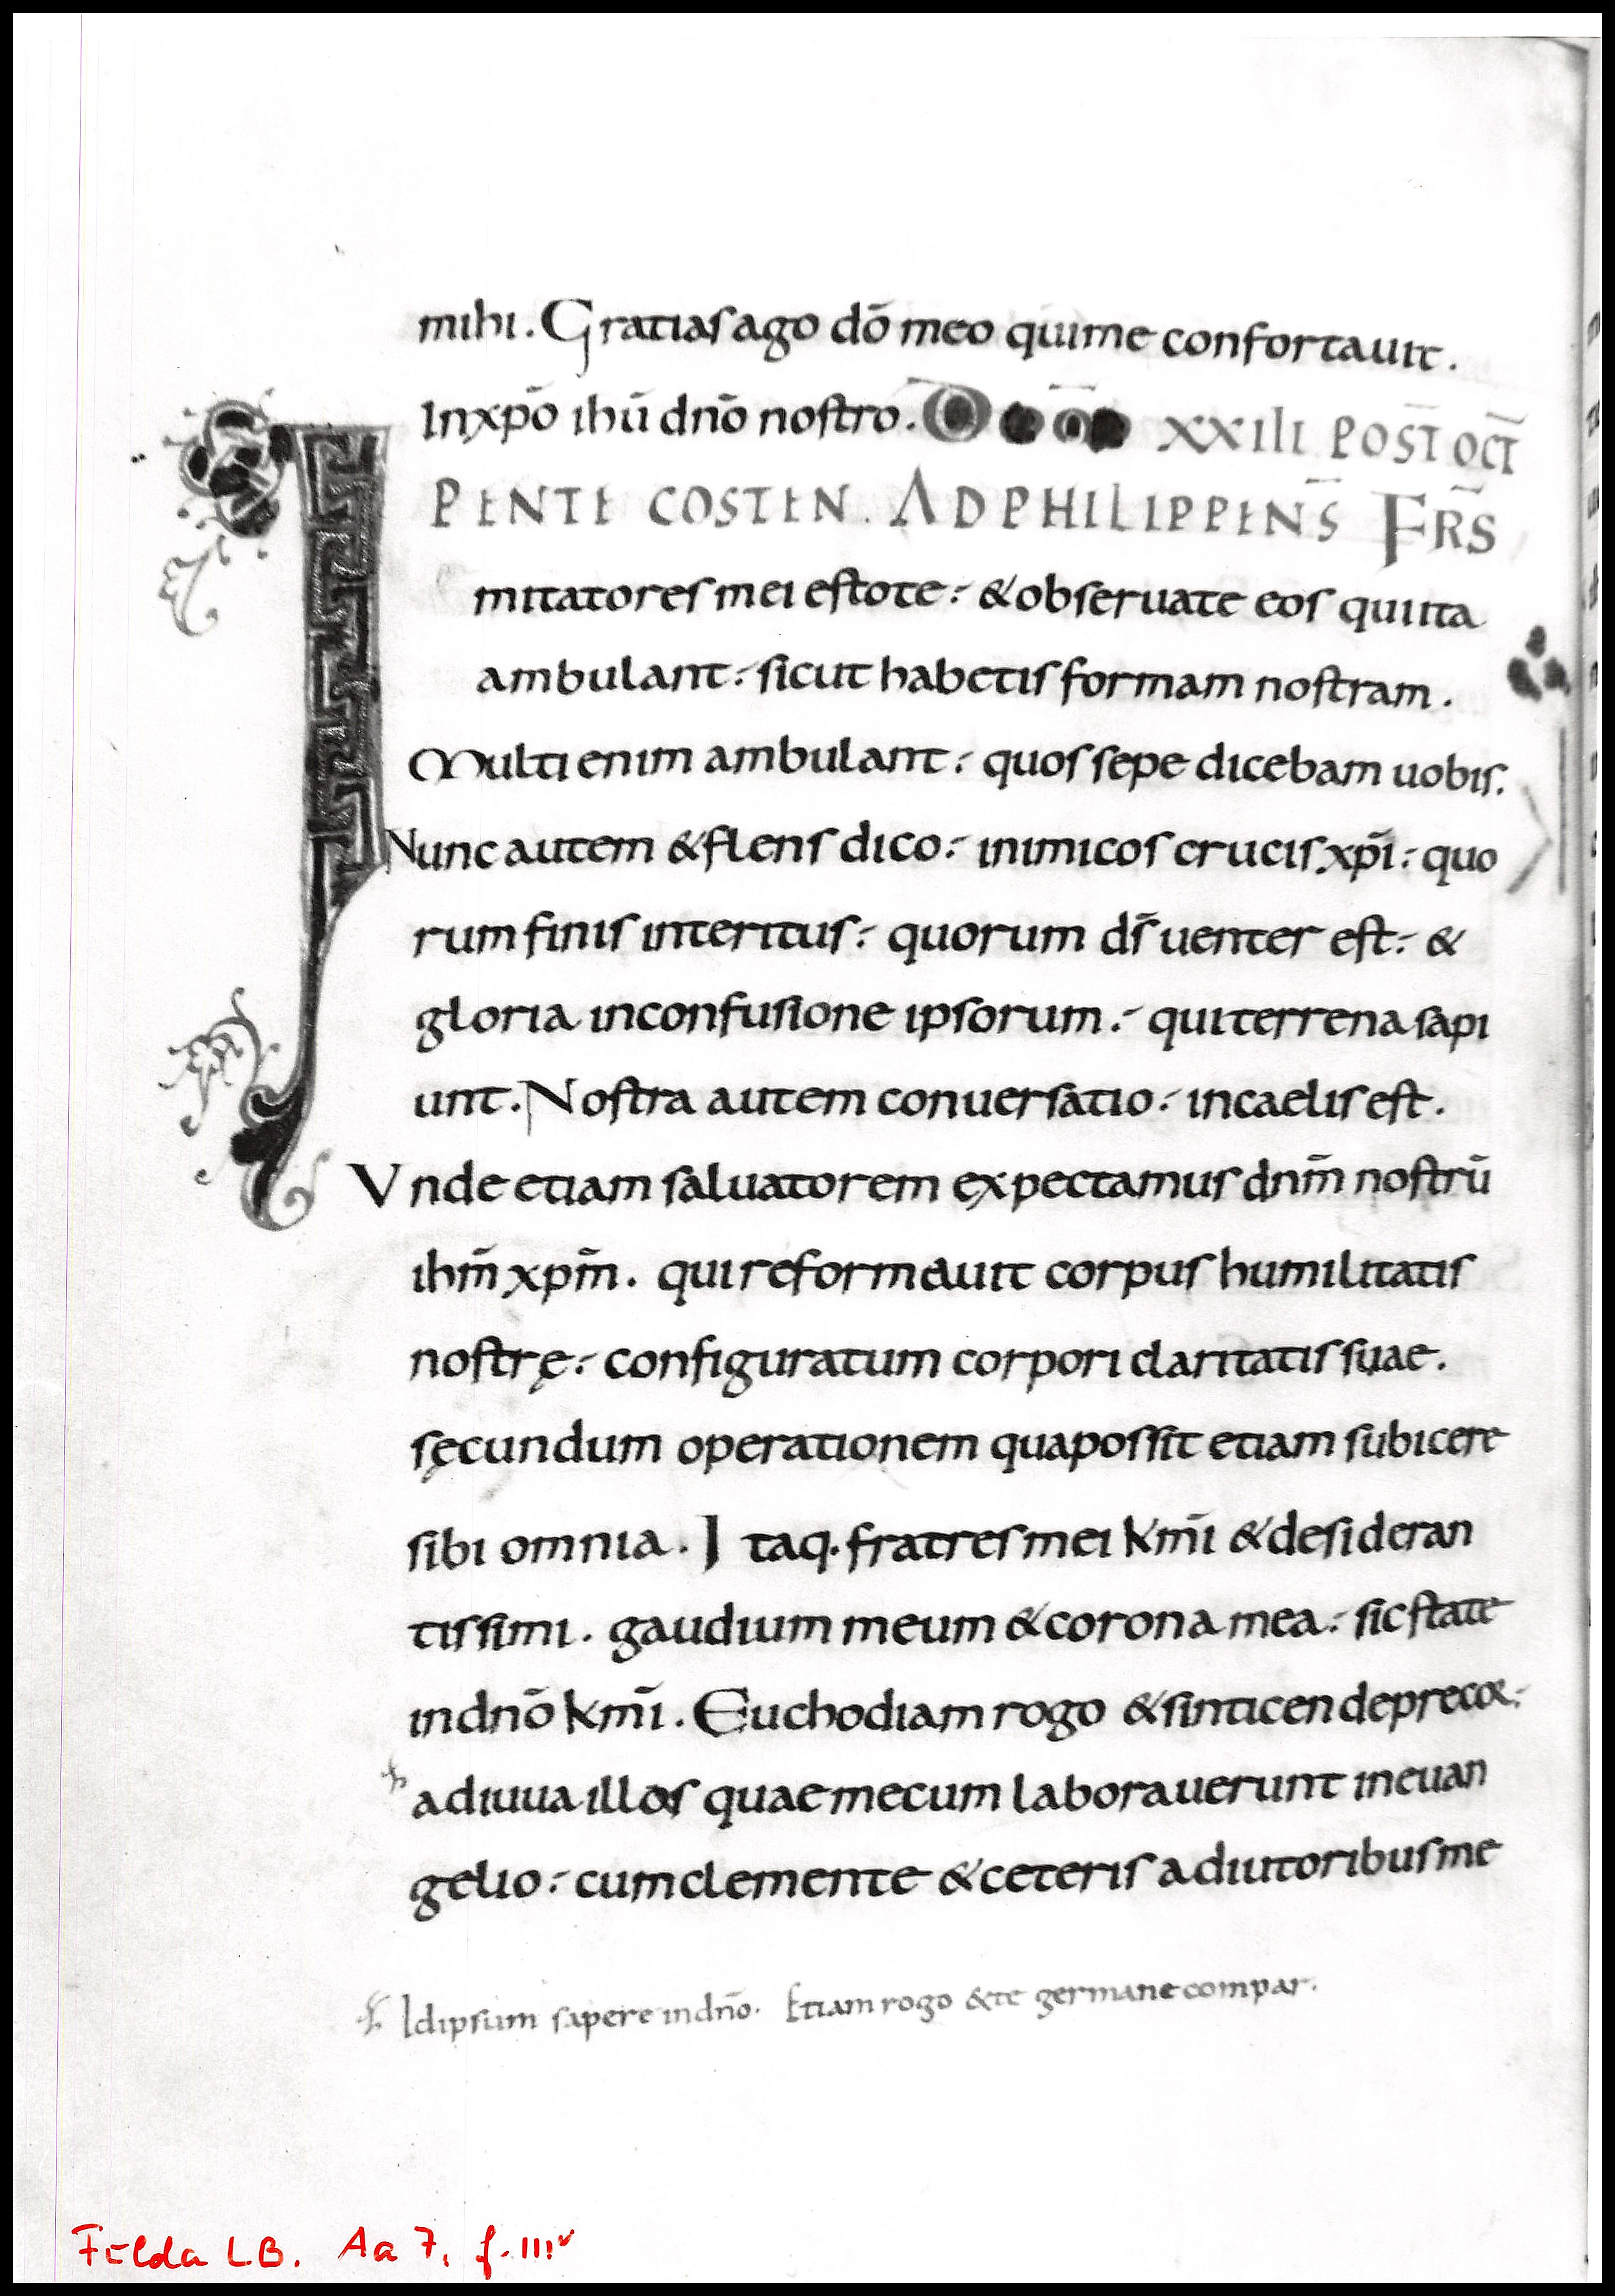 mihi. Gratias ago dō meo qui me confortauit.
In xpō ihū dnō nostro. DOM XXIII POST OCT
PENTE COSTEN. AD PHILIPPENS̄ FR̄S
mitatores mei estote:- & obseruate eos qui ita
ambulant:- sicut habetis formam nostram.
Multi enim ambulant:- quos sepe dicebam uobis.
Nunc autem & flens dico:- inimicos crucis xpī:- quo
rum finis interitus:- quorum ds̄ uenter est:- &
gloria in confusione ipsorum:- qui terrena sapi
unt. Nostra autem conuersatio:- in caelis est.
Vnde etiam saluatorem expectamus dnm̄ nostrū
ihm̄ xpm̄. qui reformauit corpus humilitatis
nostrę:- configuratum corpori claritatis suae.
sęcundum operationem qua possit etiam subicere
sibi omnia. Itaq. fratres mei km̄i & desideran
tissimi. gaudium meum & corona mea:- sic state
in dnō km̄i. Euchodiam rogo & sinticen deprecor:-
adiuua illos quae mecum laborauerunt in euan
gelio:- cum clemente & ceteris adiutoribus me
Id ipsum sapere in dnō. Etiam rogo & te germane compar.
Fulda L.B. Aa 7, f. 111v